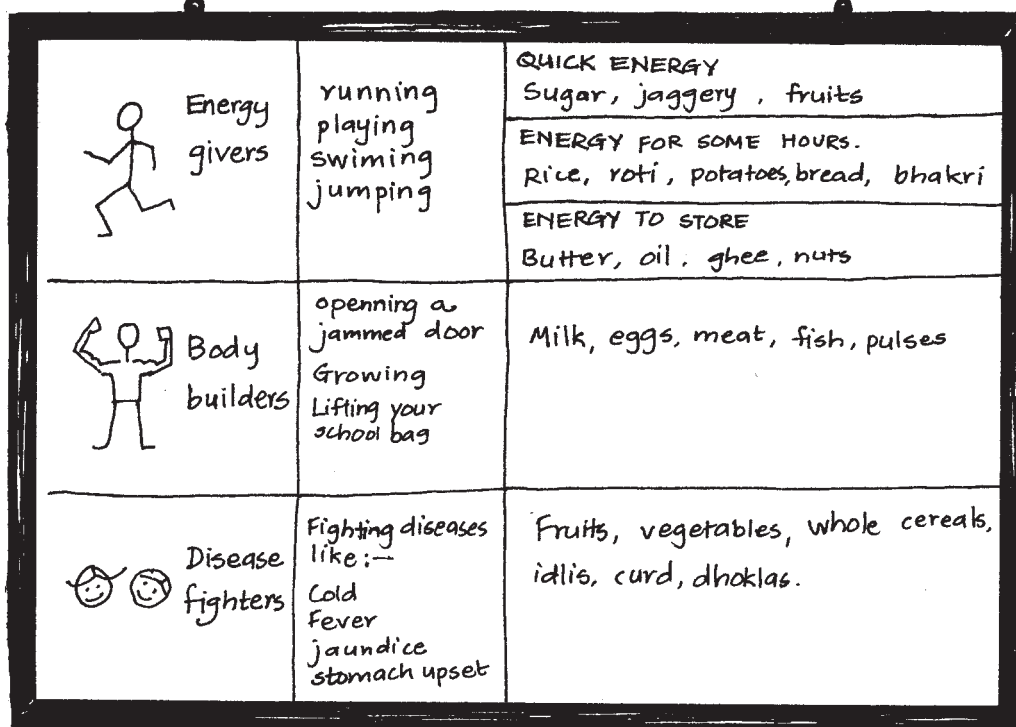 Energy
givers
running
playing
swiming
jumping
QUICK ENERGY
Sugar, jaggery, fruits
ENERGY FOR SOME HOURS.
Rice, roti, potatoes, bread, bhakri
ENERGY TO STORE
Butter, oil, ghee, nuts
Body
builders
openning a
jammed door
Growing
Lifting your
school bag
Milk, eggs, meat, fish, pulses
Disease
fighters
Fighting diseases
like:-
Cold
Fever
jaundice
stomach upset
Fruits, vegetables, whole cereals,
idlis, curd, dhoklas.